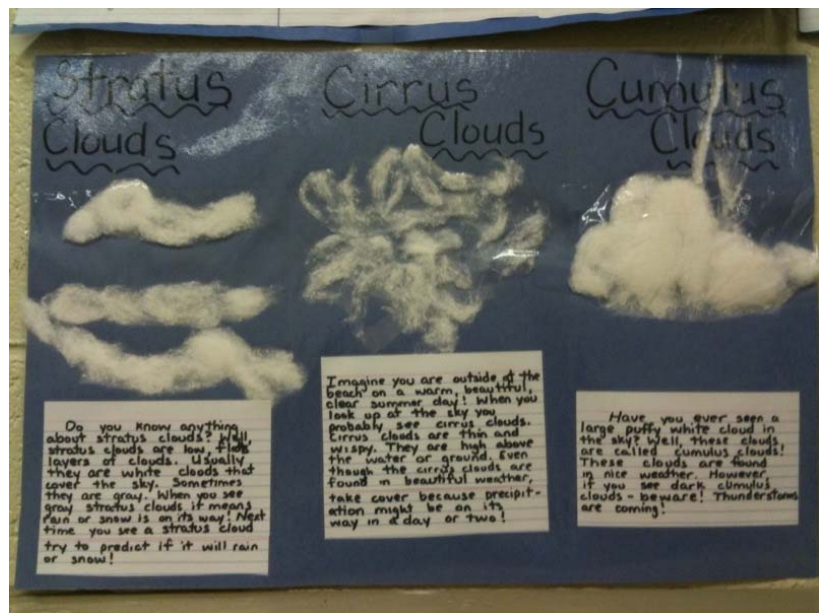 Stratus
Clouds
Do you know anything
about stratus clouds? Well,
stratus clouds are low, flat
layers of clouds. Usually
they are white clouds that
cover the sky. Sometimes
they are gray. When you see
gray stratus clouds it means
rain or snow is on its way! Next
time you see a stratus cloud
try to predict if it will rain
or snow!
Cirrus
Clouds
Imagine you are outside at the
beach on a warm, beautiful,
clear summer day! When you
look up at the sky you
probably see cirrus clouds.
Cirrus clouds are thin and
wispy. They are high above
the water or ground. Even
though the cirrus clouds are
found in beautiful weather,
take cover because precipit-
ation might be on its
way in a day or two!
Cumulus
Clouds
Have you ever seen a
large puffy white cloud in
the sky? Well, these clouds
are called cumulus clouds!
These clouds are found
in nice weather. However,
if you see dark cumulus
clouds - beware! Thunderstorms
are coming!